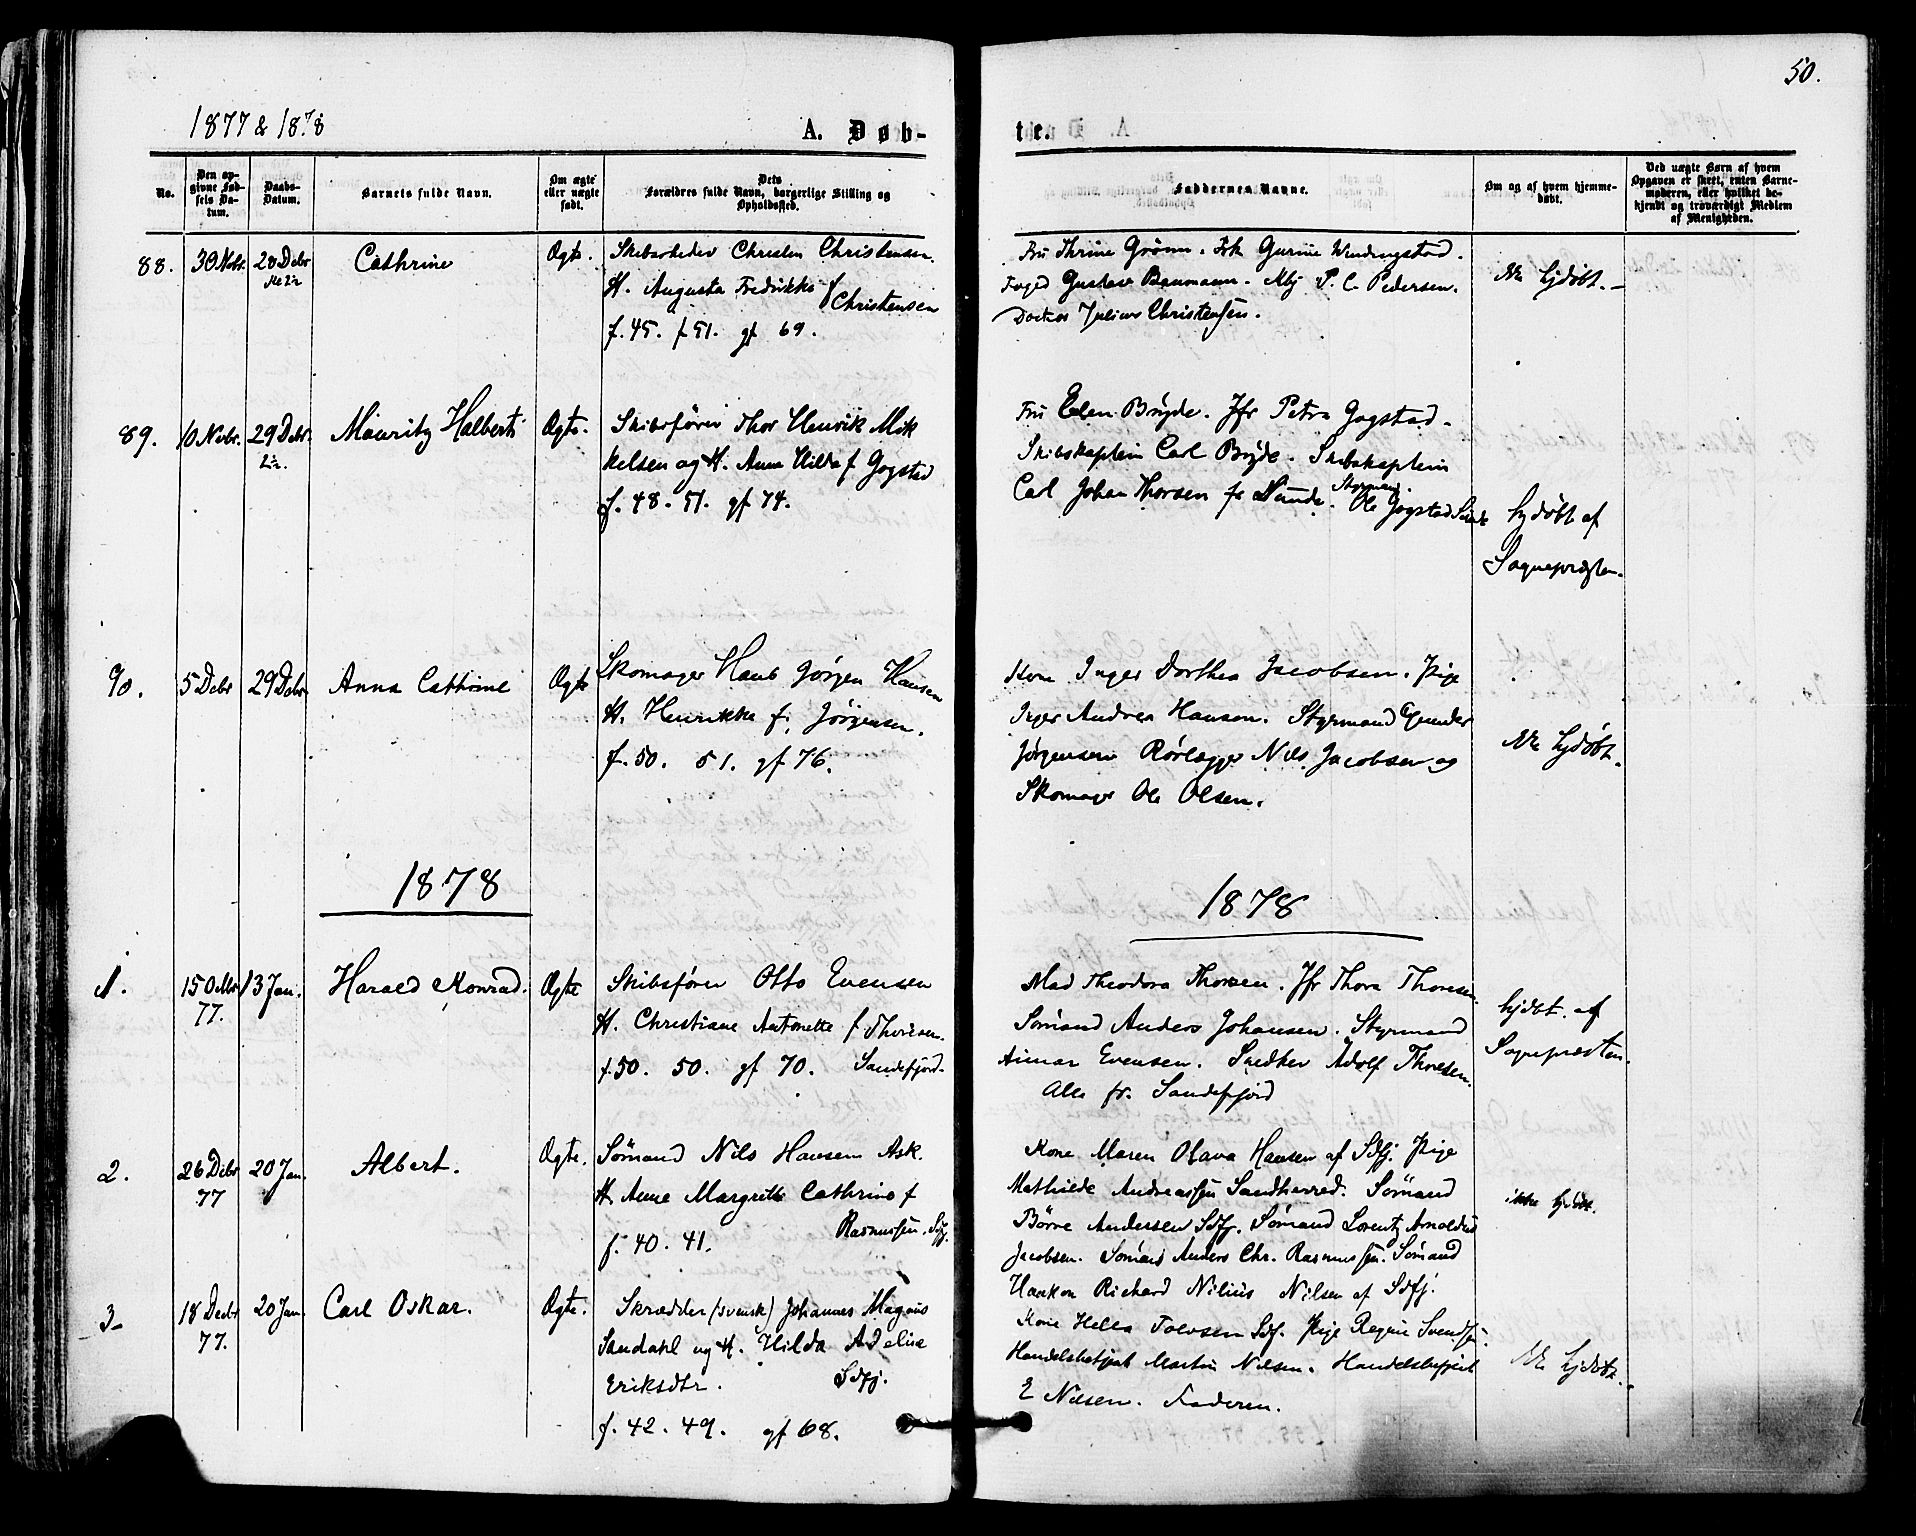 50.
1877 & 1878
A. Døb-
te.
No.
Den op-
givne Fød-
sels Da-
tum.
Daabs-
Datum.
Barnets fulde Navn.
Om ægte
eller uægte
født.
Dets
Forældres fulde Navn, borgerlige Stilling og
Opholdssted.
Faddernes Navne.
Om og af hvem hjemme-
døbt.
Ved uægte Børn af hvem
Opgaven er skeet, enten Barne-
moderen, eller hvilket be-
kjendt og troværdigt Medlem
af Menigheden.
88.
30 Novbr.
28 Debr
Cathrine
Ægte.
Skibsarbeder Christen Christensen.
H. Augusta Fredrikke f
Christensen
f. 45. f 51. gf 69.
Fru Thrine Grønn. Frk Gurine
Foged Gustav Baumann. Kbj P. C. Pedersen.
Doctor Julius Christensen.
Ikke hjdøbt.
89.
10 Novbr.
29 Debr.
Mouritz Halbert
Ægte.
Skibsfører Thor Henrik Mik
kelsen og H. Anne Hilda f Gogstad
f. 48. 51. gf 74.
Fru Elen Bryde. Jfr Petra Gogstad.
Skibskaptein Carl Bryde. Skibskaptein
Carl Johan Thorsen fr
Styrmand
Ole Gogstad
hjdøbt af
Sognepræsten.
90.
5 Debr
29 Debr
Anna Cathrine
Ægte
Skomager Hans Jørgen Hansen
H. Henrikke f. Jørgensen.
f. 50. 51. gf 76.
Kone Inger Dorthea Jacobsen. Pige
Inger Andrea Hansen. Styrmand Gunder
Jørgensen Rørlægger Nils Jacobsen og
Skomager Ole Olsen.
Ikke hjdøbt.
1878
1878
1.
15 Oktbr
77.
13 Jan.
Harald Konrad.
Ægte
Skibsfører Otto Evensen
H. Christiane Antonette f Thoresen.
f. 50. 50. gf 70. Sandefjord.
Mad Theodora Thorsen. Jfr Thora Thoresen.
Sømand Anders Johansen. Styrmand
Evensen. Snedker Adolf Thoresen.
Alle fr. Sandefjord
hjdøbt. af
Sognepræsten.
2.
26 Debr
77
20 Jan.
Albert.
Ægte.
Sømand Nils Hansen Ask.
H. Anne Margrethe Cathrine f
Rasmussen. Sdfj.
f. 40. 41.
Kone Maren Olava Hansen af Sdfj. Pige
Mathilde Andreassen Sandherred. Sømand
Børre Andersen Sdfj. Sømand Lorentz Arnoldus
Jacobsen. Sømand Anders Chr. Rasmussen. Sømand
Haakon Richard Nilius Nilsen af Sdfj.
ikke hjdøbt.
3
18 Decbr
77.
20 Jan.
Carl Oskar.
Ægte.
Skrædder (svensk) Johannes Magnus
Sandahl og H. Hilda Adeline
Eriksdtr. Sdfj.
f. 42. 49. gf 68.
Kone Helle Tolvsen Sdfj. Pige Regine Svendsen
Handelsbetjent Martin Nilsen. Handelsbetjent
E Nilsen. Faderen.
Ikke hjdøbt.